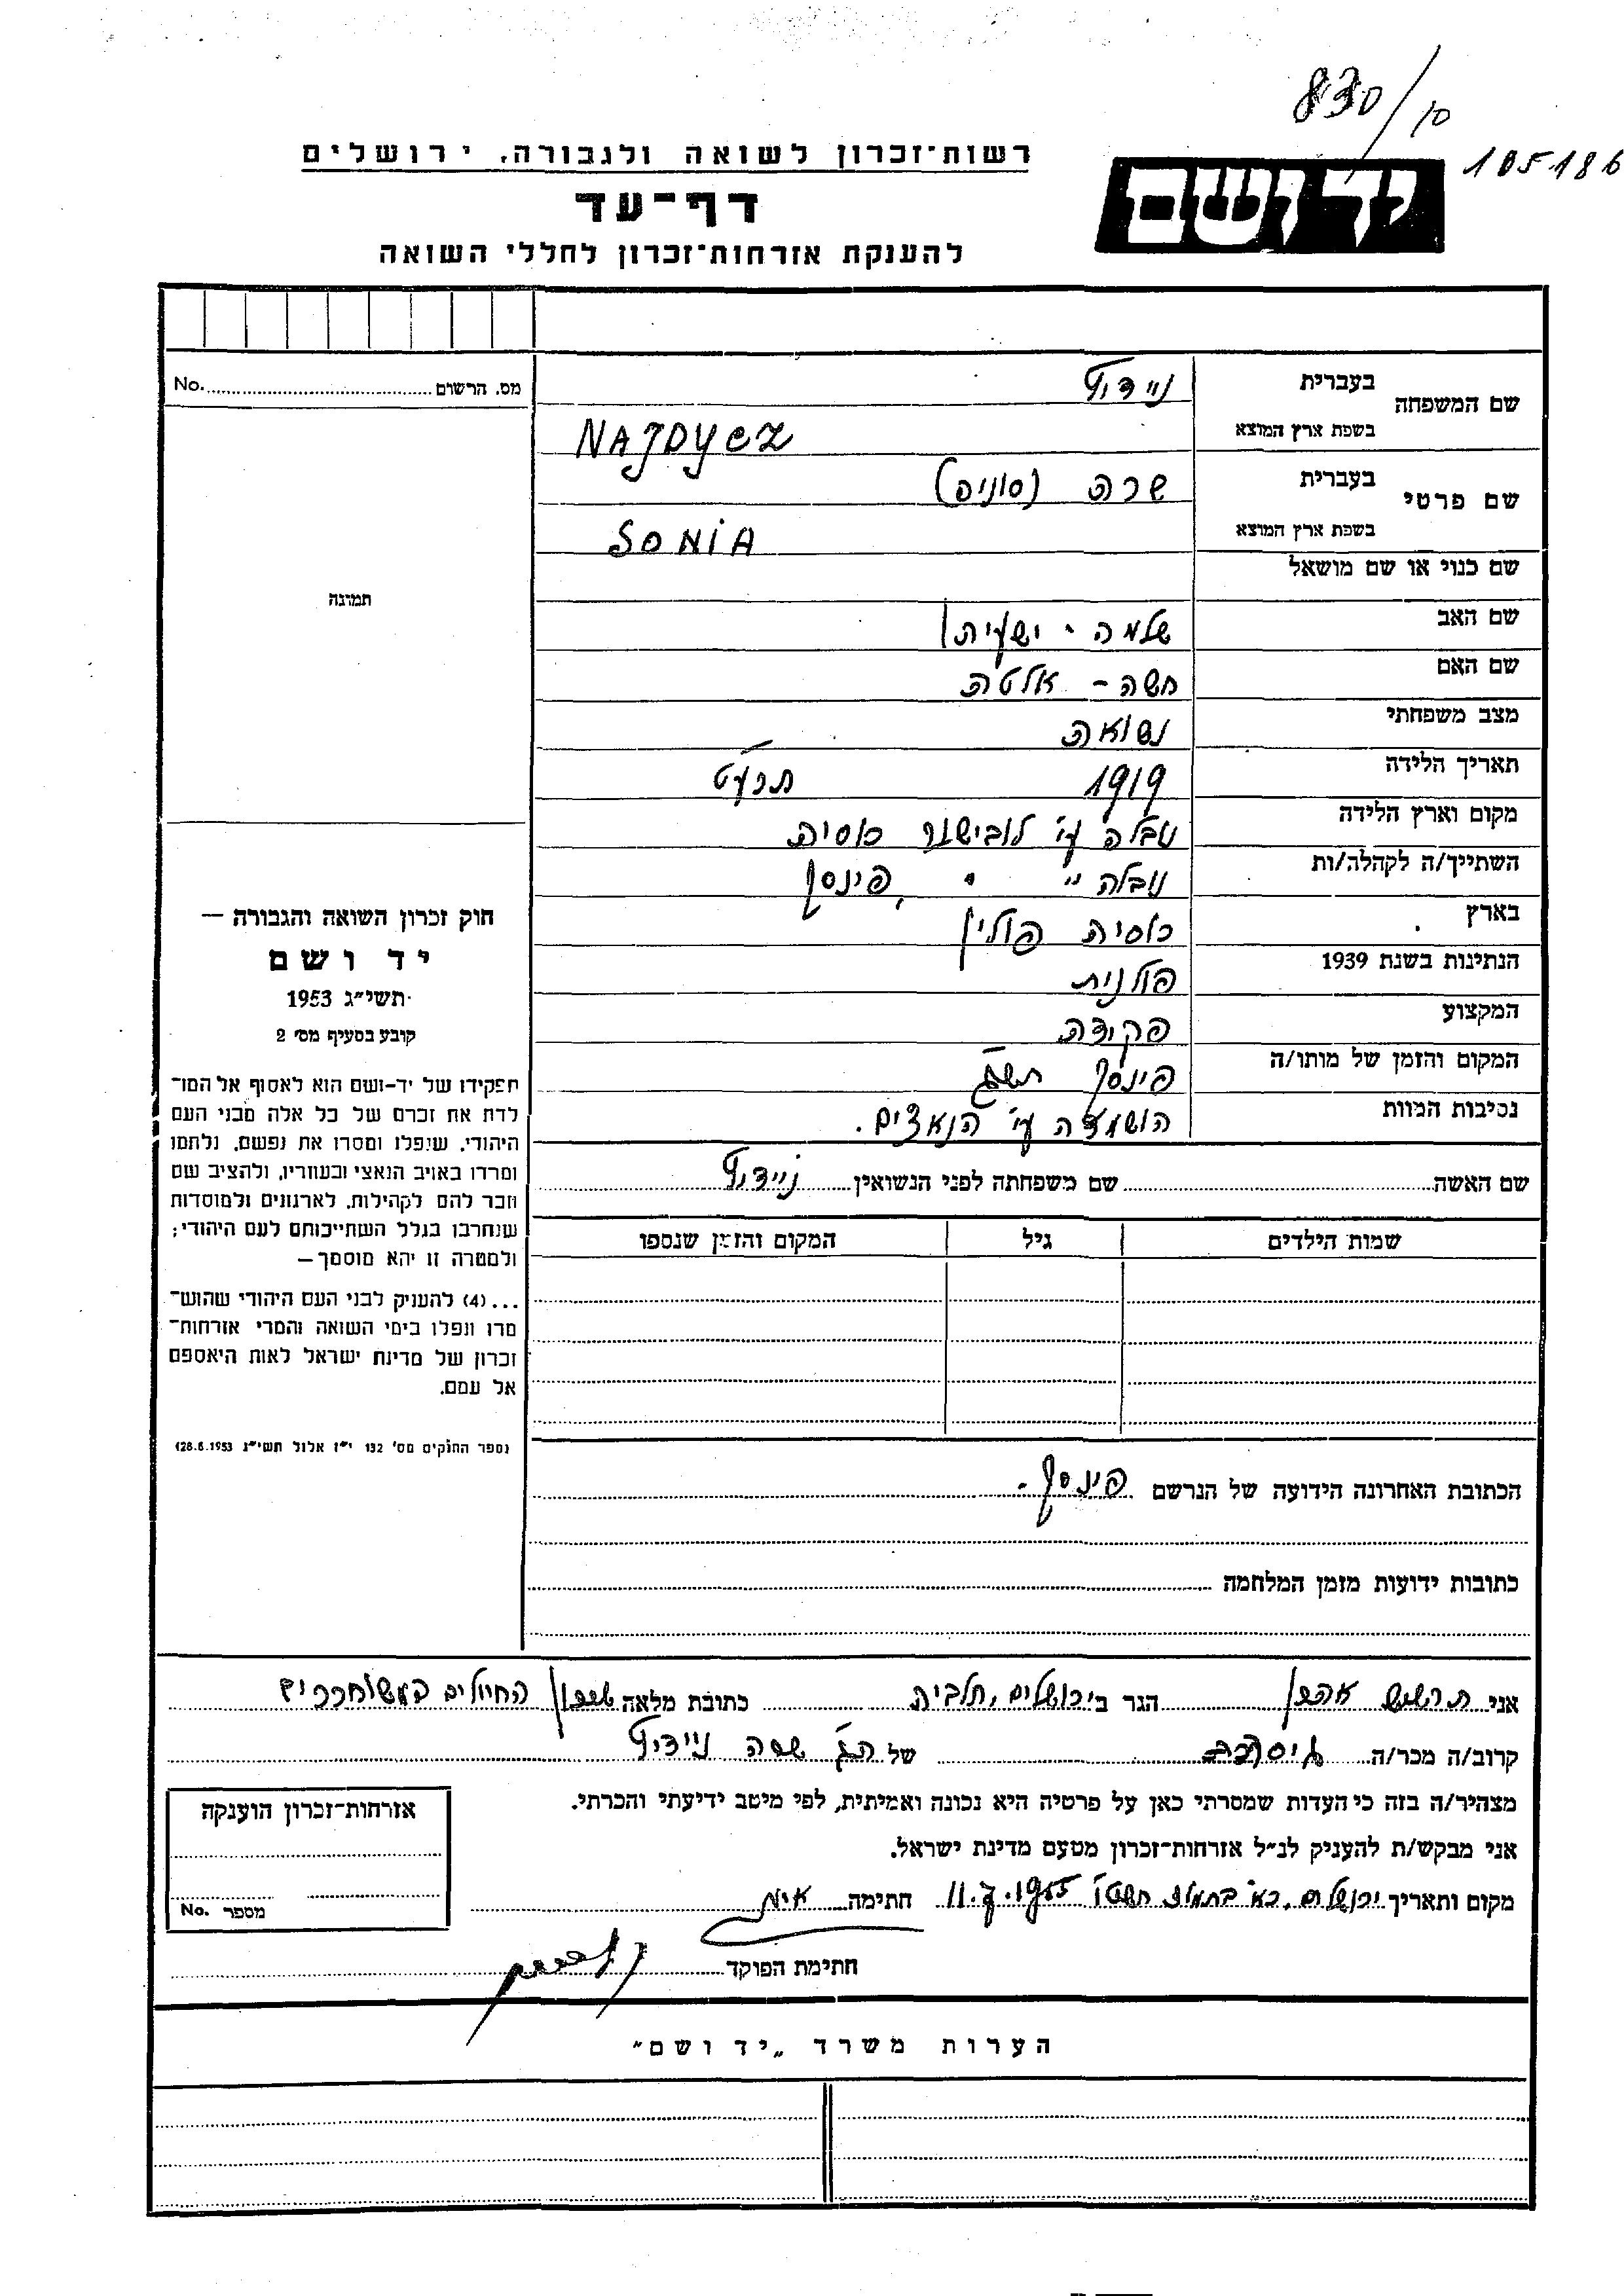 830/10
105186
רשות־זכרון לשואה ולגבורה, ירושלים
יד ושם
דף־עד
להענקת אזרחות־זכרון לחללי השואה
מס. הרשום No.
שם המשפחה בעברית ניידיץ
בשפת ארץ המוצא NAJDYCZ
שם פרטי בעברית שרה (סוניה)
בשפת ארץ המוצא SONIA
שם כנוי או שם מושאל
שם האב שלמה - ישעיהו
שם האם חשה - אלטה
מצב משפחתי נשואה
תאריך הלידה 1919 תרע"ט
מקום וארץ הלידה נובלה ע"י לובישוב רוסיה
השתייך/ה לקהלה/ות נובלה " " פינסק
בארץ רוסיה פולין
הנתינות בשנת 1939 פולנית
המקצוע פקידה
המקום והזמן של מותו/ה פינסק
נסיבות המוות הושמדה ע"י הנאצים.
שם האשה שם משפחתה לפני הנשואין ניידיץ
שמות הילדים גיל המקום והזמן שנספו
הכתובת האחרונה הידועה של הנרשם פינסק.
כתובות ידועות מזמן המלחמה
תמונה
חוק זכרון השואה והגבורה —
יד ושם
תשי"ג 1953
קובע בסעיף מס' 2
תפקידו של יד-ושם הוא לאסוף אל המו־
לדת את זכרם של כל אלה מבני העם
היהודי, שנפלו ומסרו את נפשם, נלחמו
ומרדו באויב הנאצי ובעוזריו, ולהציב שם
וזכר להם לקהילות, לארגונים ולמוסדות
שנחרבו בגלל השתייכותם לעם היהודי;
ולמטרה זו יהא מוסמך —
...(4) להעניק לבני העם היהודי שהוש־
מדו ונפלו בימי השואה והמרי אזרחות־
זכרון של מדינת ישראל לאות היאספם
אל עמם.
(ספר החוקים מס' 132 י"ז אלול תשי"ג 28.8.1953)
אני אהרון הגר בירושלים, תלפיות כתובת מלאה שכון החיילים המשוחררים
קרוב/ה מכר/ה של הגב' שרה ניידיץ
מצהיר/ה בזה כי העדות שמסרתי כאן על פרטיה היא נכונה ואמיתית, לפי מיטב ידיעתי והכרתי.
אני מבקש/ת להעניק לנ"ל אזרחות־זכרון מטעם מדינת ישראל.
מקום ותאריך ירושלים, כא' בתמוז תשטו' 11.7.1955 חתימה
חתימת הפוקד
אזרחות־זכרון הוענקה
מספר No.
הערות משרד "יד ושם"